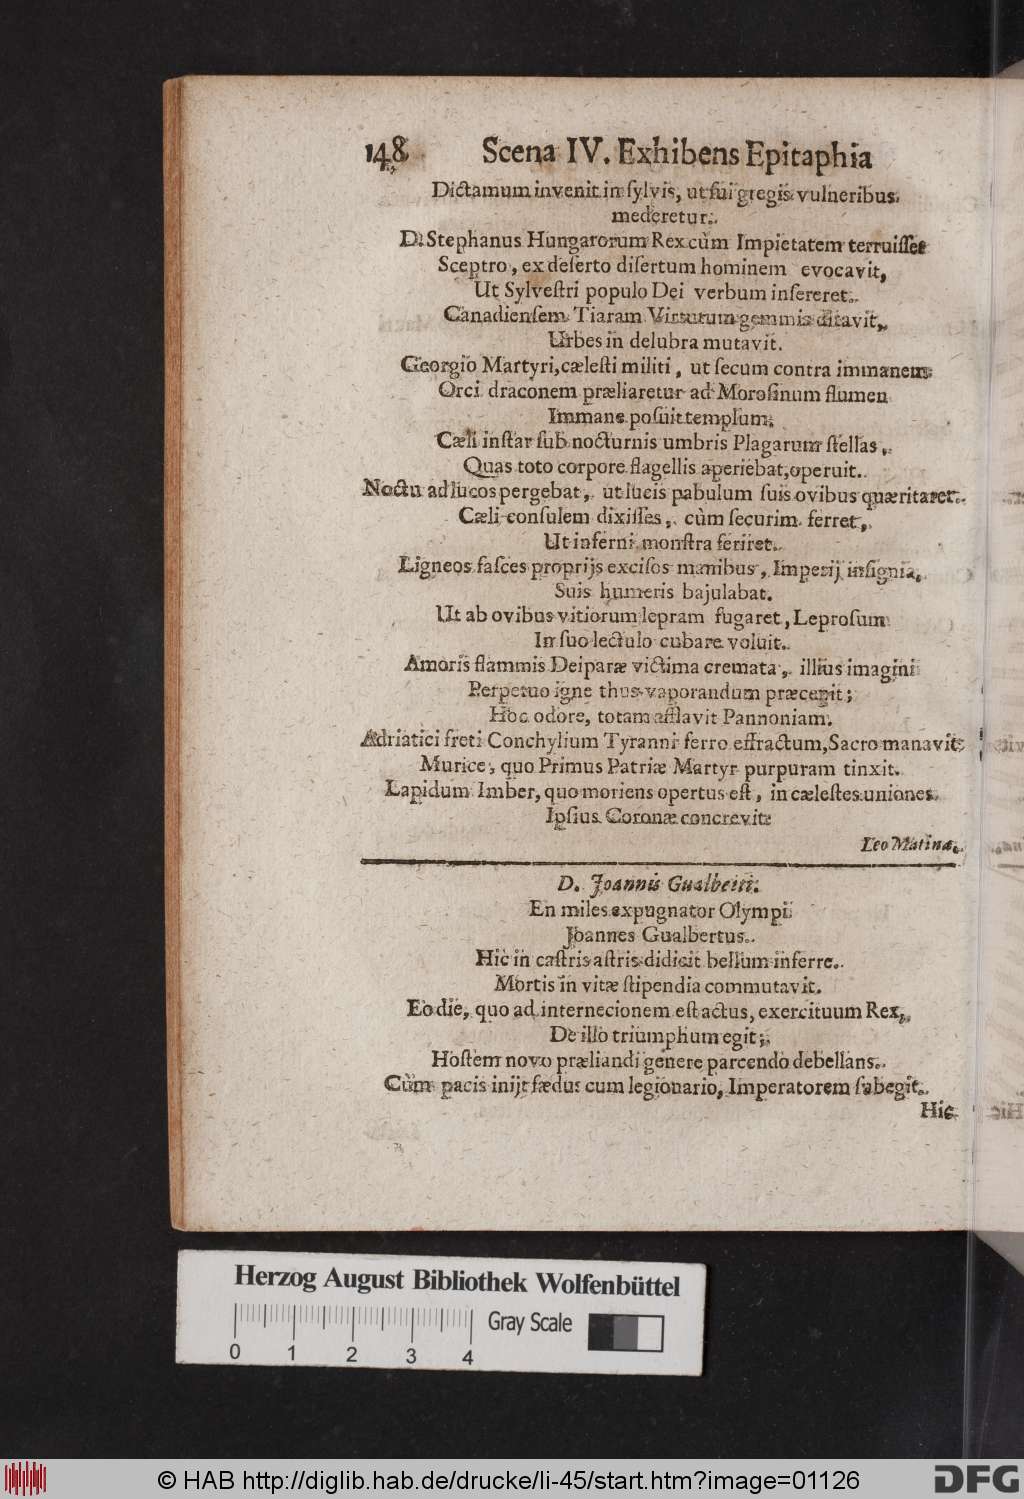 148 Scena IV. Exhibens Epitaphia
Dictamum invenit in sylvis, ut sui gregis vulneribus
mederetur.
D. Stephanus Hungarorum Rex cùm Impietatem terruisset
Sceptro, ex deserto disertum hominem evocavit,
Ut Sylvestri populo Dei verbum insereret.
Canadiensem Tiaram Virtutum gemmis ditavit,
Urbes in delubra mutavit.
Georgio Martyri, cælesti militi, ut secum contra immanem
Orci draconem præliaretur ad Morosinum flumen
Immane posuit templum.
Cæli instar sub nocturnis umbris Plagarum stellas,
Quas toto corpore flagellis aperiebat, operuit.
Noctu ad lucos pergebat, ut lucis pabulum suis ovibus quæritaret.
Cæli consulem dixisses, cùm securim ferret,
Ut inferni monstra feriret.
Ligneos fasces proprijs excisos manibus, Imperij insignia,
Suis humeris bajulabat.
Ut ab ovibus vitiorum lepram fugaret, Leprosum
In suo lectulo cubare voluit.
Amoris flammis Deiparæ victima cremata, illius imagini
Perpetuo igne thus vaporandum præcepit;
Hoc odore, totam afflavit Pannoniam.
Adriatici freti Conchylium Tyranni ferro effractum, Sacro manavit
Murice, quo Primus Patriæ Martyr purpuram tinxit.
Lapidum Imber, quo moriens opertus est, in cælestes uniones
Ipsius Coronæ concrevit.
Leo Matina.
D. Joannis Gualberti.
En miles expugnator Olympi
Joannes Gualbertus.
Hic in castris astris didicit bellum inferre.
Mortis in vitæ stipendia commutavit.
Eo die, quo ad internecionem est actus, exercituum Rex,
De illo triumphum egit;
Hostem novo præliandi genere parcendo debellans.
Cùm pacis inijt fædus cum legionario, Imperatorem subegit.
Hic
Herzog August Bibliothek Wolfenbüttel
Gray Scale
0 1 2 3 4
© HAB http://diglib.hab.de/drucke/li-45/start.htm?image=01126
DFG